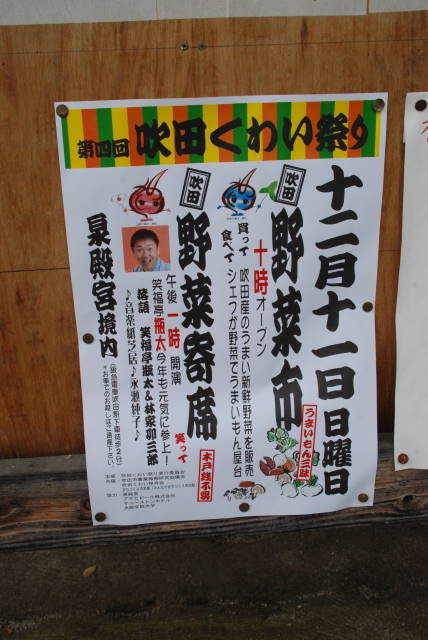 第四回 吹田くわい祭り
十二月十一日日曜日
吹田
野菜市
うまいもん三昧
買って
食べて
十時オープン
吹田産のうまい新鮮野菜を販売
シェフが野菜でうまいもん屋台
吹田
野菜寄席
木戸銭不要
笑って
午後一時開演
笑福亭瓶太今年も元気に参上！
落語 笑福亭瓶太&林家卯三郎
♪音楽紙芝居♪永瀬純子♪
泉殿宮境内
(阪急電車吹田駅下車徒歩2分)
*お車でのお越しはご遠慮下さい。
主催
協力